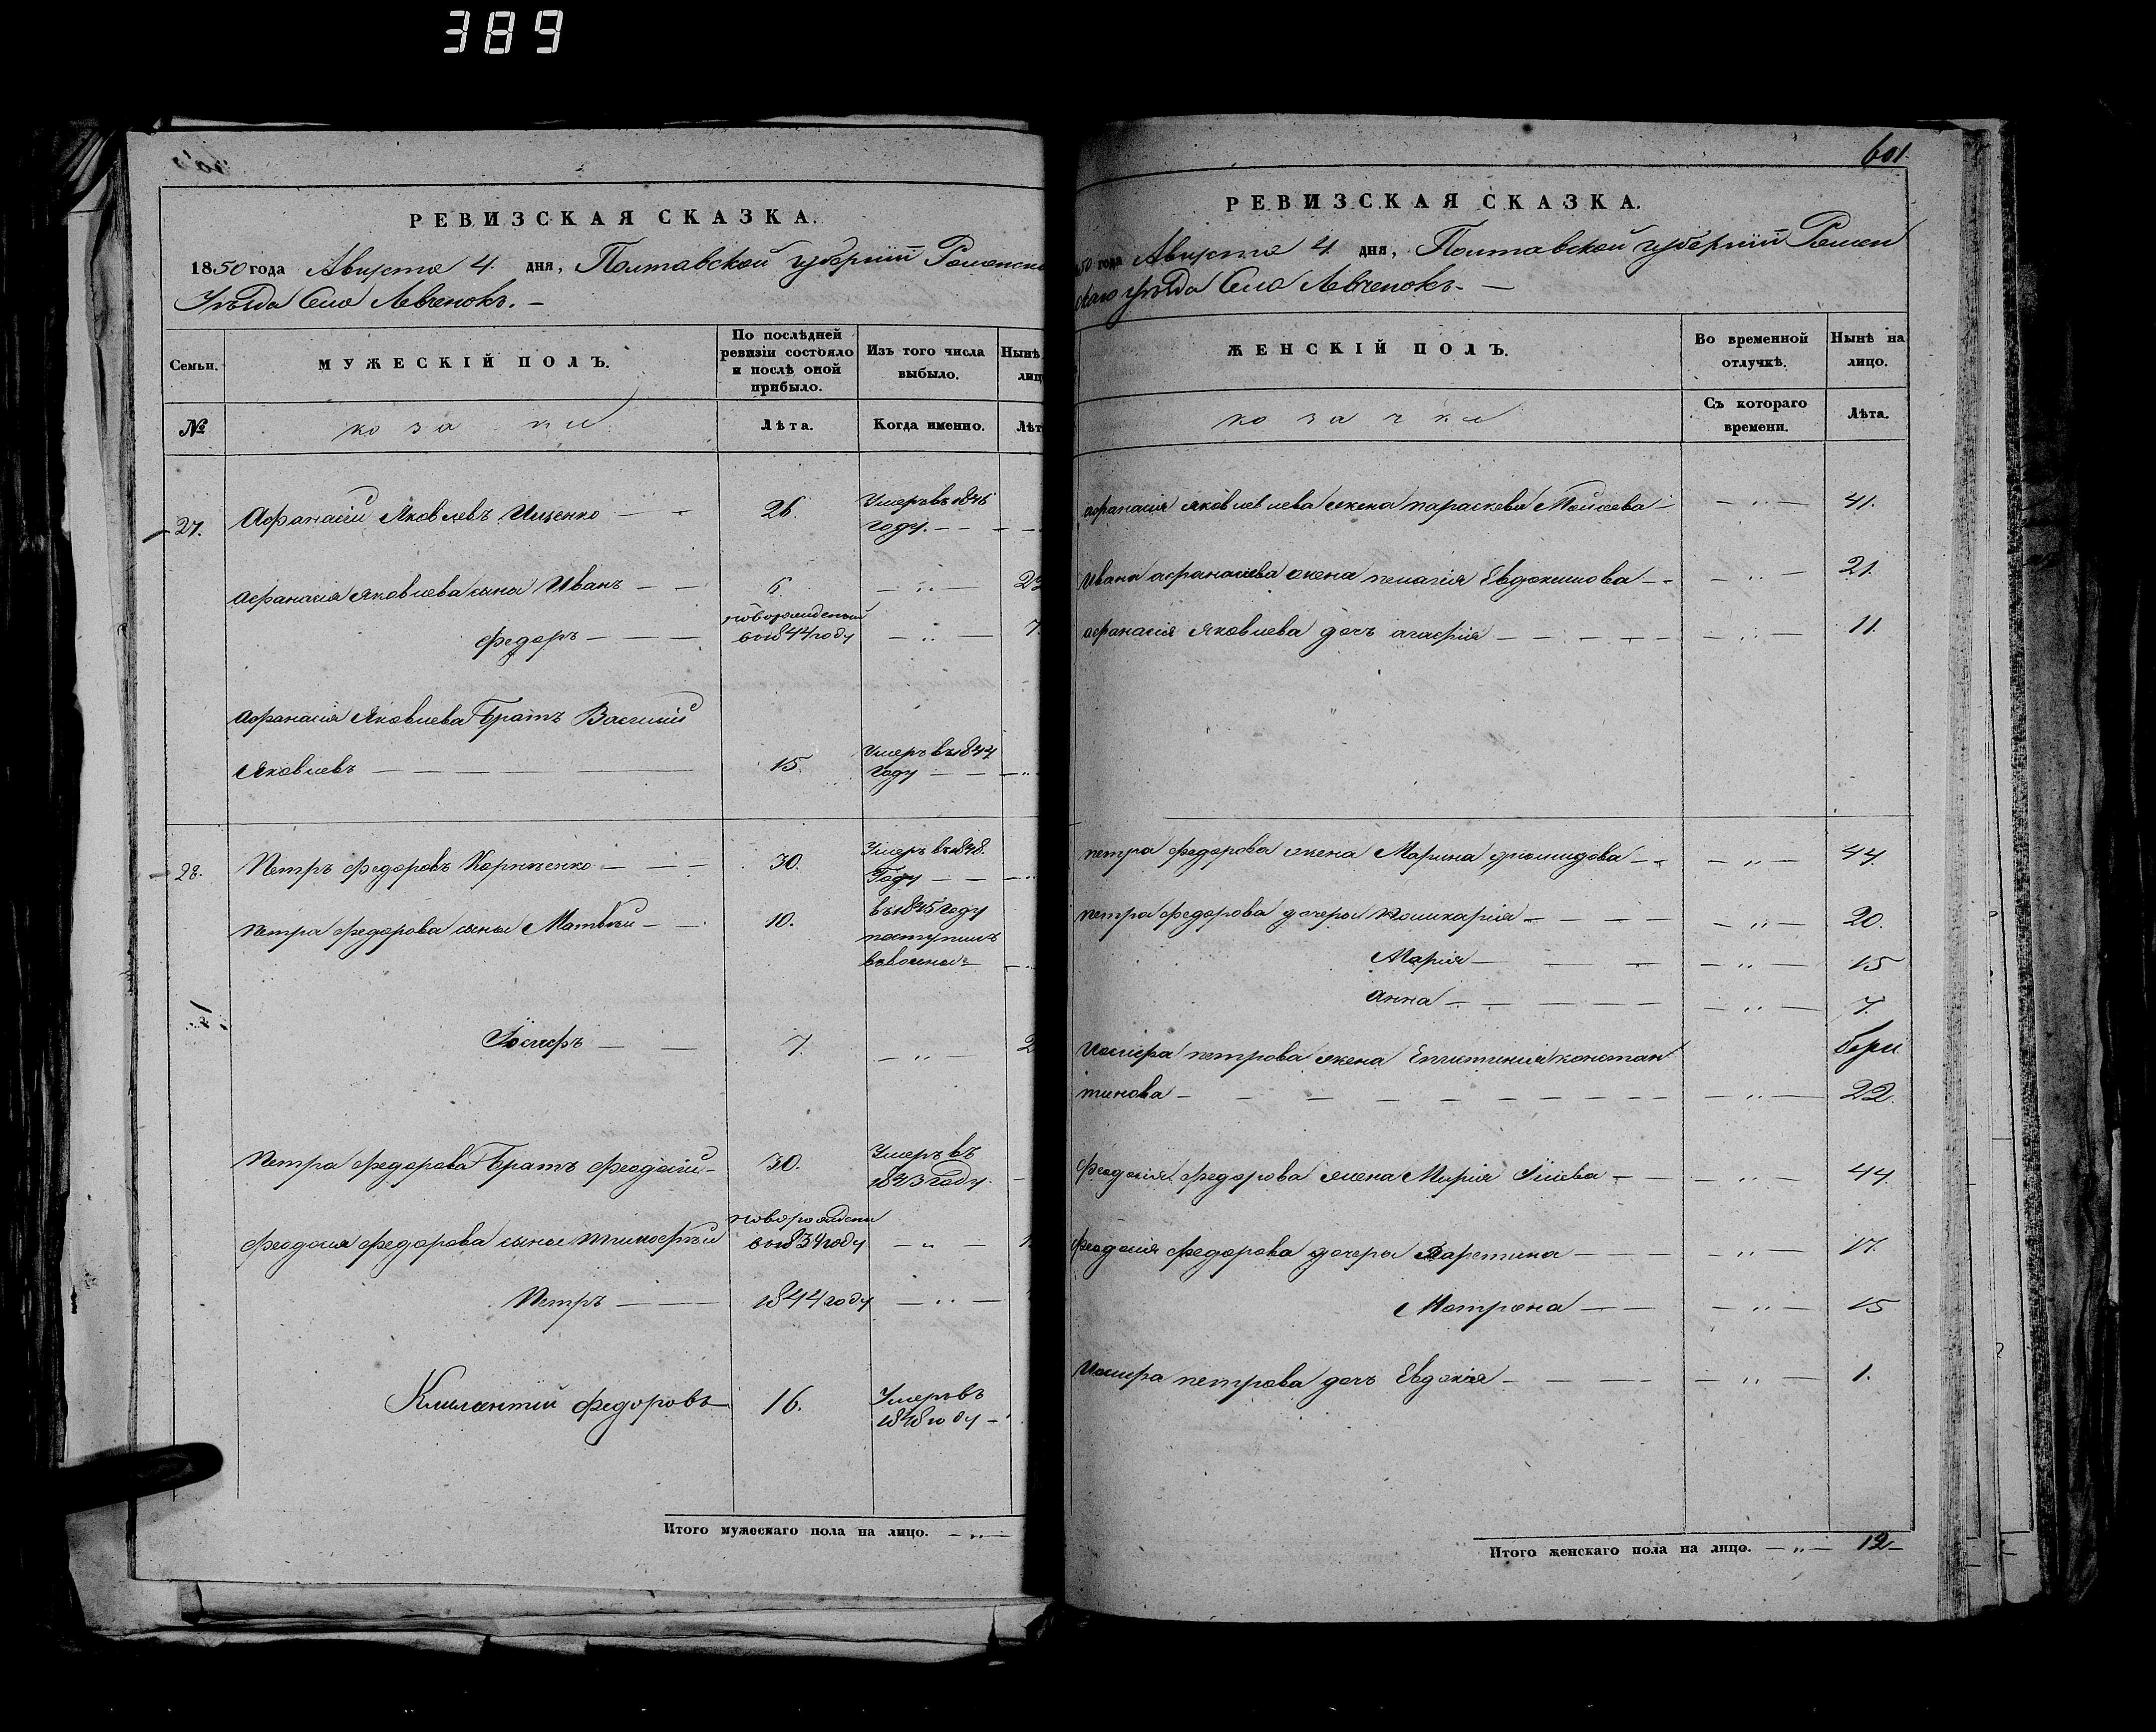 389
РЕВИЗСКАЯ СКАЗКА.
1850 года Августа 4. дня, Полтавской губерніи Роменск
Уѣзда Село Левченокъ. —
Семьи.
МУЖЕСКІЙ ПОЛЪ.
По послѣдней ревизіи состояло и послѣ оной прибыло.
Изъ того числа выбыло.
Нынѣ лиц
№
козаки
Лѣта.
Когда именно.
Лѣт
27. Афанасій Яковлевъ Ищенко — 26. Умеръ въ 1846
году. — —
Афанасія Яковлева сыны Иванъ — — 6 — „ — 2
Федоръ — — — новорожденный
въ 1844 году — „ — 7.
Афанасія Яковлева братъ Василій
Яковлевъ — — — 15. Умеръ въ
году — —
28. Петръ Федоровъ Корніенко — — — 30. Умеръ въ 1848.
Году — —
Петра Федорова сыны Матвѣй — — 10. въ 1845 году
поступилъ
Іосифъ — — 7. — „ — 2
Петра Федорова братъ Феодосій — 30. Умеръ въ
1843 году.
Феодосія Федорова сыны Тимофѣй новорожден
въ 1834 году — „ —
Петръ — — 1844 году — „ —
Климентій Федоровъ 16. Умеръ въ
1848 году —
Итого мужескаго пола на лицо. — „ —
601
РЕВИЗСКАЯ СКАЗКА.
50 года Августа 4. дня, Полтавской губерніи Ромен
скаго уѣзда Село Левченокъ. —
ЖЕНСКІЙ ПОЛЪ.
Во временной отлучкѣ.
Нынѣ на лицо.
козачки
Съ котораго времени.
Лѣта.
Афанасія Яковлева жена Параскева Мойсеева — — „ — 41.
Ивана Афанасіева жена Пелагія Евдокимова — — „ — 21.
Афанасія Яковлева дочь Агафія — — — — „ — 11.
Петра Федорова жена Марина Діомидова — — „ — 44.
Петра Федорова дочери Гликерія — — — „ — 20.
Марія — — — — „ — 15
Анна — — — — „ — 7.
Іосифа Петрова жена Епистимія Констан
тинова — — — — — „ — 22.
Феодосія Федорова жена Марія — — „ — 44
Феодосія Федорова дочери — — „ — 17.
Мотрона — — — „ — 15
Іосифа Петрова дочь Евдокія — — — — „ — 1.
Итого женскаго пола на лицо. — „ — 12 —